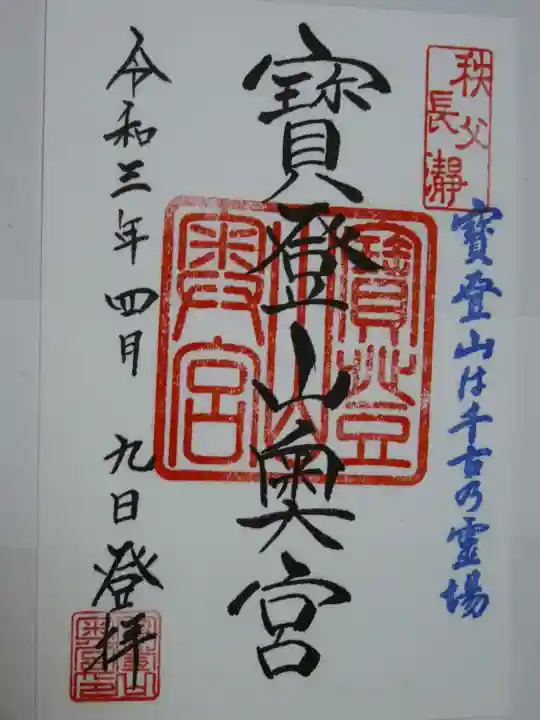 秩父
長瀞
寶登山は千古の霊場
寶登山奥宮
寶登山奥宮
令和三年四月九日登拝